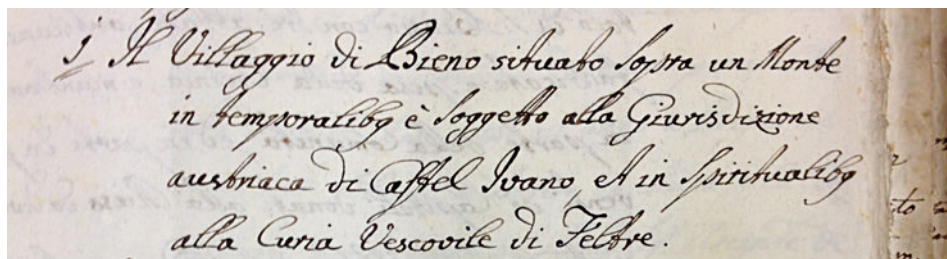 1 Il Villaggio di Bieno situato sopra un Monte
in temporalibq è soggetto alla Giurisdizione
austriaca di Castel Ivano, et in spiritualibq
alla Curia Vescovile di Feltre.